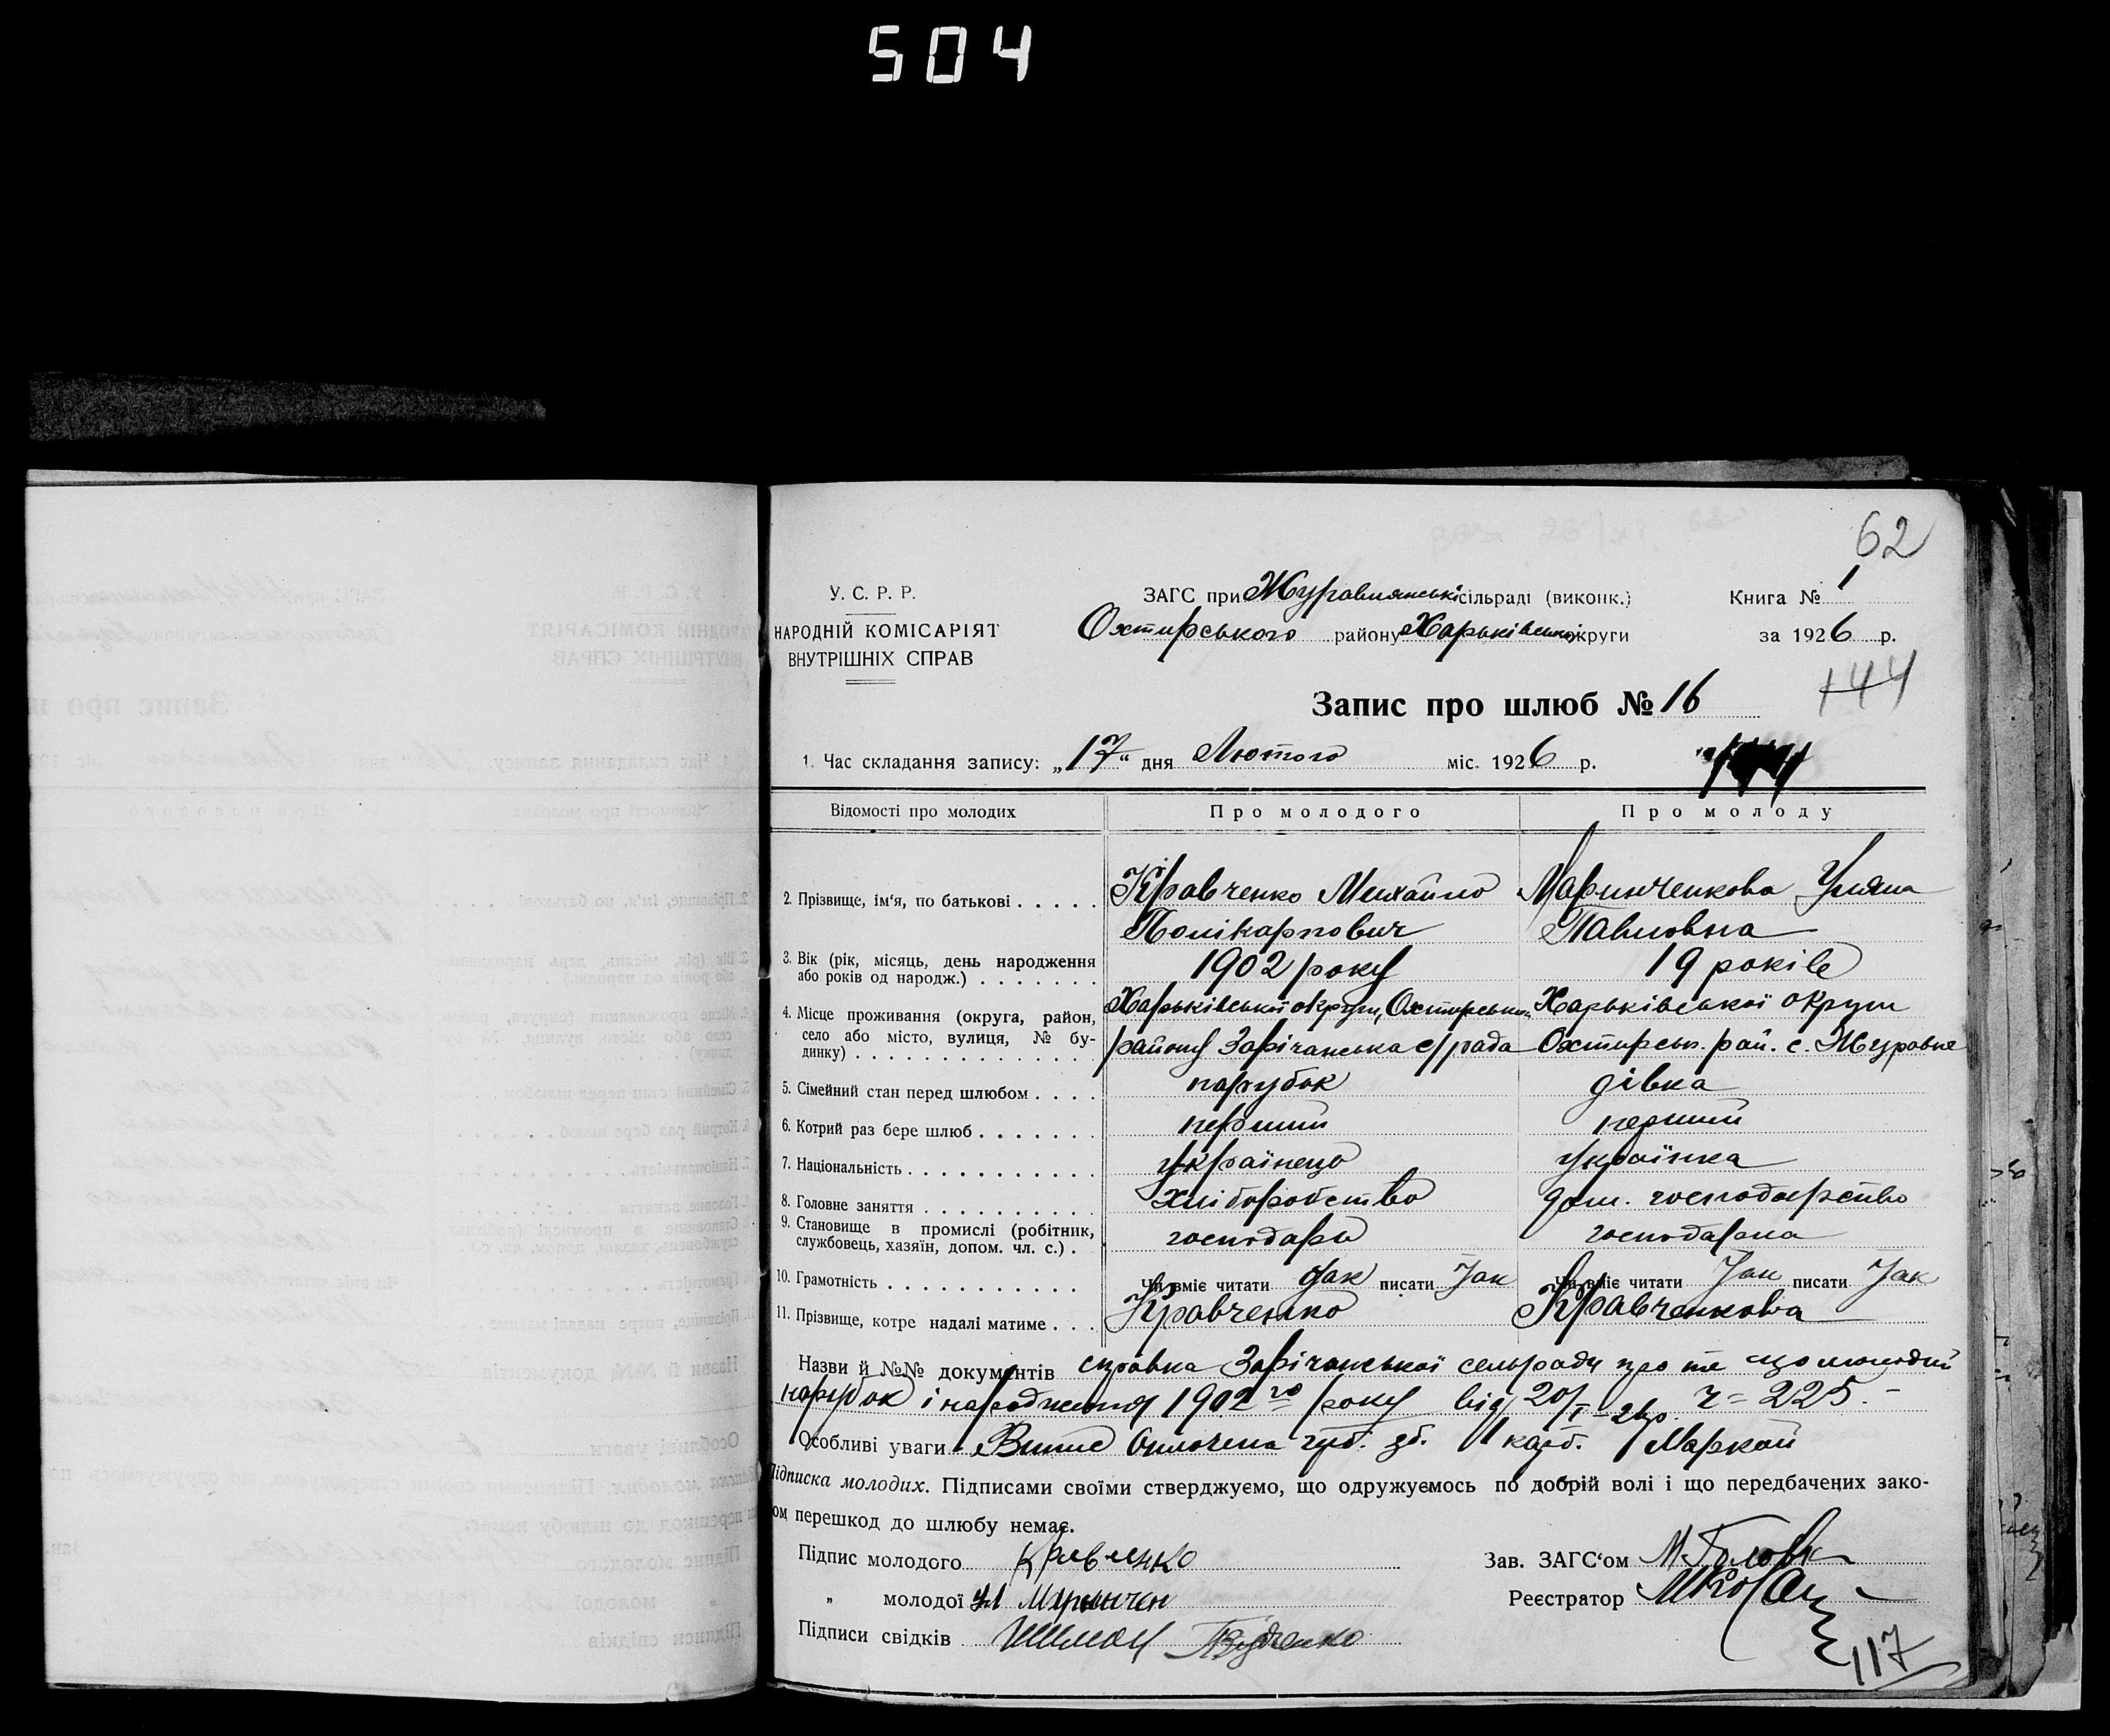 504
62
У. С. Р. Р.
НАРОДНІЙ КОМІСАРІЯТ
ВНУТРІШНІХ СПРАВ
ЗАГС при Журавлянській сільраді (виконк.)
Охтирського району Харьківської округи
Книга № 1
за 1926 р.
Запис про шлюб № 16
144
1. Час складання запису: „17“ дня Лютого міс. 1926 р.
Відомості про молодих Про молодого Про молоду
2. Прізвище, ім'я, по батькові . . . . . Кравченко Михайло Маринченкова Уляна
Полікарпович Павловна
3. Вік (рік, місяць, день народження 1902 року 19 років
або років од народж.) . . . . . . .
4. Місце проживання (округа, район, Харьківської округи, Охтирськ. Харьківської округи
село або місто, вулиця, № бу- району Зарічанська с/рада Охтирськ. рай. с. Журавне
динку) . . . . . . . . . . . . .
5. Сімейний стан перед шлюбом . . . . парубок дівка
6. Котрий раз бере шлюб . . . . . . . перший перший
7. Національність . . . . . . . . . . українець українка
8. Головне заняття . . . . . . . . . . хліборобство дом. господарство
9. Становище в промислі (робітник, господарь господарка
службовець, хазяїн, допом. чл. с.) .
10. Грамотність . . . . . . . . . . . Чи вміє читати так писати так Чи вміє читати так писати так
11. Прізвище, котре надалі матиме . . . Кравченко Кравченкова
Назви й №№ документів справка Зарічанської сельради про те що молодий
парубок і народження 1902 го року від 20/I-26 р. ч = 225.-
Особливі уваги Випис Оплочена губ. зб. 1 карб. Маркой
Підписка молодих. Підписами своїми стверджуємо, що одружуємось по добрій волі і що передбачених зако-
ом перешкод до шлюбу немає.
Підпис молодого Кравченко
Зав. ЗАГС‘ом М Головк
„ молодої Ул Маринчен
Реєстратор
Підписи свідків
117